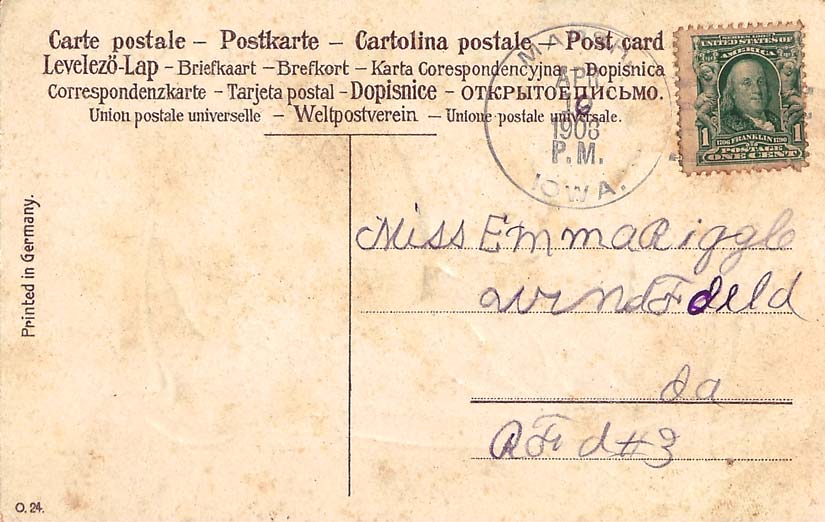 Carte postale – Postkarte – Cartolina postale – Post card
Levelező-Lap – Briefkaart – Brefkort – Karta Corespondencyjna – Dopisnica
Correspondenzkarte – Tarjeta postal – Dopisnice – ОТКРЫТОЕ ПИСЬМО.
Union postale universelle – Weltpostverein – Unione postale universale.
MARSH
APR
1908
P.M.
IOWA.
UNITED STATES OF
AMERICA
1 1
1706 FRANKLIN 1790
POSTAGE
ONE CENT
Printed in Germany.
Miss Emma Riggle
WindField
Ia
RFd #3
O. 24.